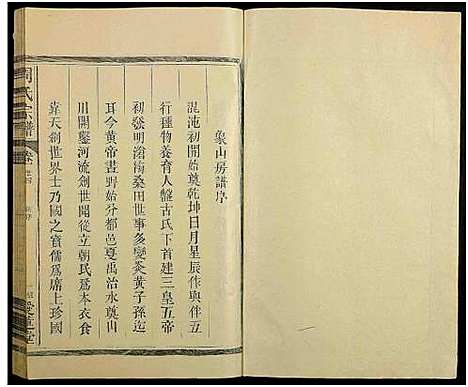 象山房譜序
混沌初開奠乾坤日月星辰作與伴五
行種物養育人盤古氏下首建三皇五帝
初發明滄海桑田世事多變炎黃子孫迄
耳今黃帝晝野始分都邑夏禹治水奠山
川開鑿河流創世開從立朝氏為本衣食
靠天創世界士乃國之寶儒為席上珍國
周氏宗譜
愛蓮堂